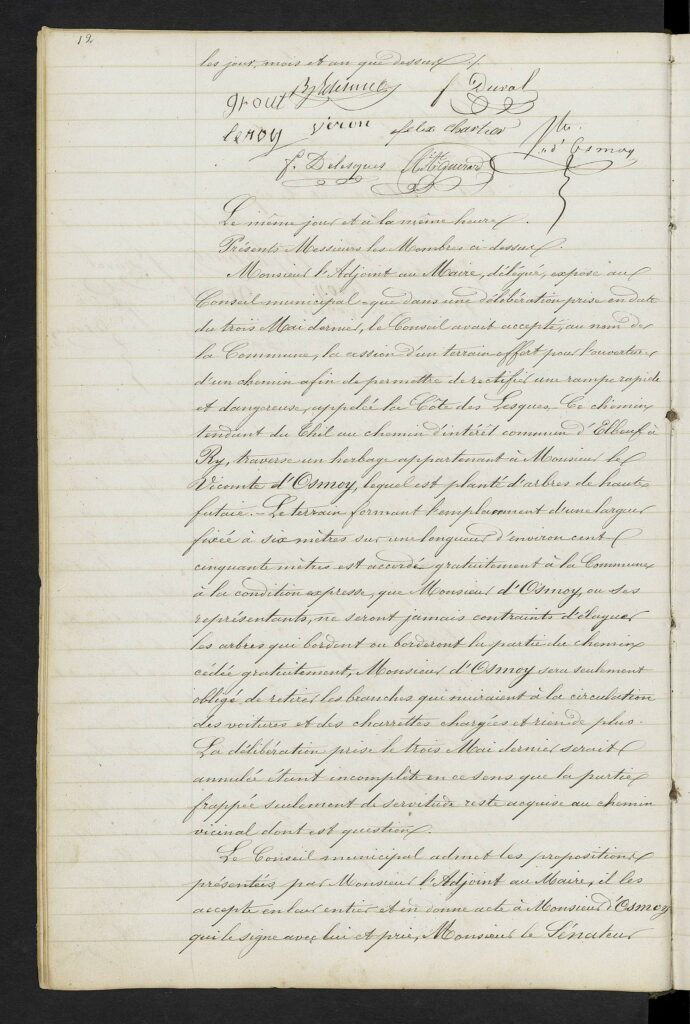 12
les jour, mois et an que dessus ./.
grout
f Duval
leroy
Véron
felix Chartier
Vte d'Osmoy
f. Delesques
Le même jour et à la même heure.
Présents Messieurs les Membres ci-dessus.
Monsieur l'Adjoint au Maire, délégué, expose au
Conseil municipal que dans une délibération prise en date
du trois Mai dernier, le Conseil avait accepté, au nom de
la Commune, la cession d'un terrain offert pour l'ouverture
d'un chemin afin de permettre de rectifier une rampe rapide
et dangereuse, appelée la Côte des Lesques. Ce chemin
tendant du Thil au chemin d'intérêt commun d'Elbeuf à
Ry, traverse un herbage appartenant à Monsieur le
Vicomte d'Osmoy, lequel est planté d'arbres de haute
futaie. - Le terrain formant l'emplacement d'une largeur
fixée à six mètres sur une longueur d'environ cent
cinquante mètres est accordé gratuitement à la Commune
à la condition expresse, que Monsieur d'Osmoy, ou ses
représentants, ne seront jamais contraints d'élaguer
les arbres qui bordent ou borderont la partie du chemin
cédée gratuitement, Monsieur d'Osmoy sera seulement
obligé de retirer les branches qui nuiraient à la circulation
des voitures et des charrettes chargées et rien de plus.
La délibération prise le trois Mai dernier serait
annulée étant incomplète en ce sens que la partie
frappée seulement de servitude reste acquise au chemin
vicinal dont est question.
Le Conseil municipal admet les propositions
présentées par Monsieur l'Adjoint au Maire, il les
accepte en leur entier et en donne acte à Monsieur d'Osmoy
qui le signe avec lui et prie, Monsieur le Sénateur